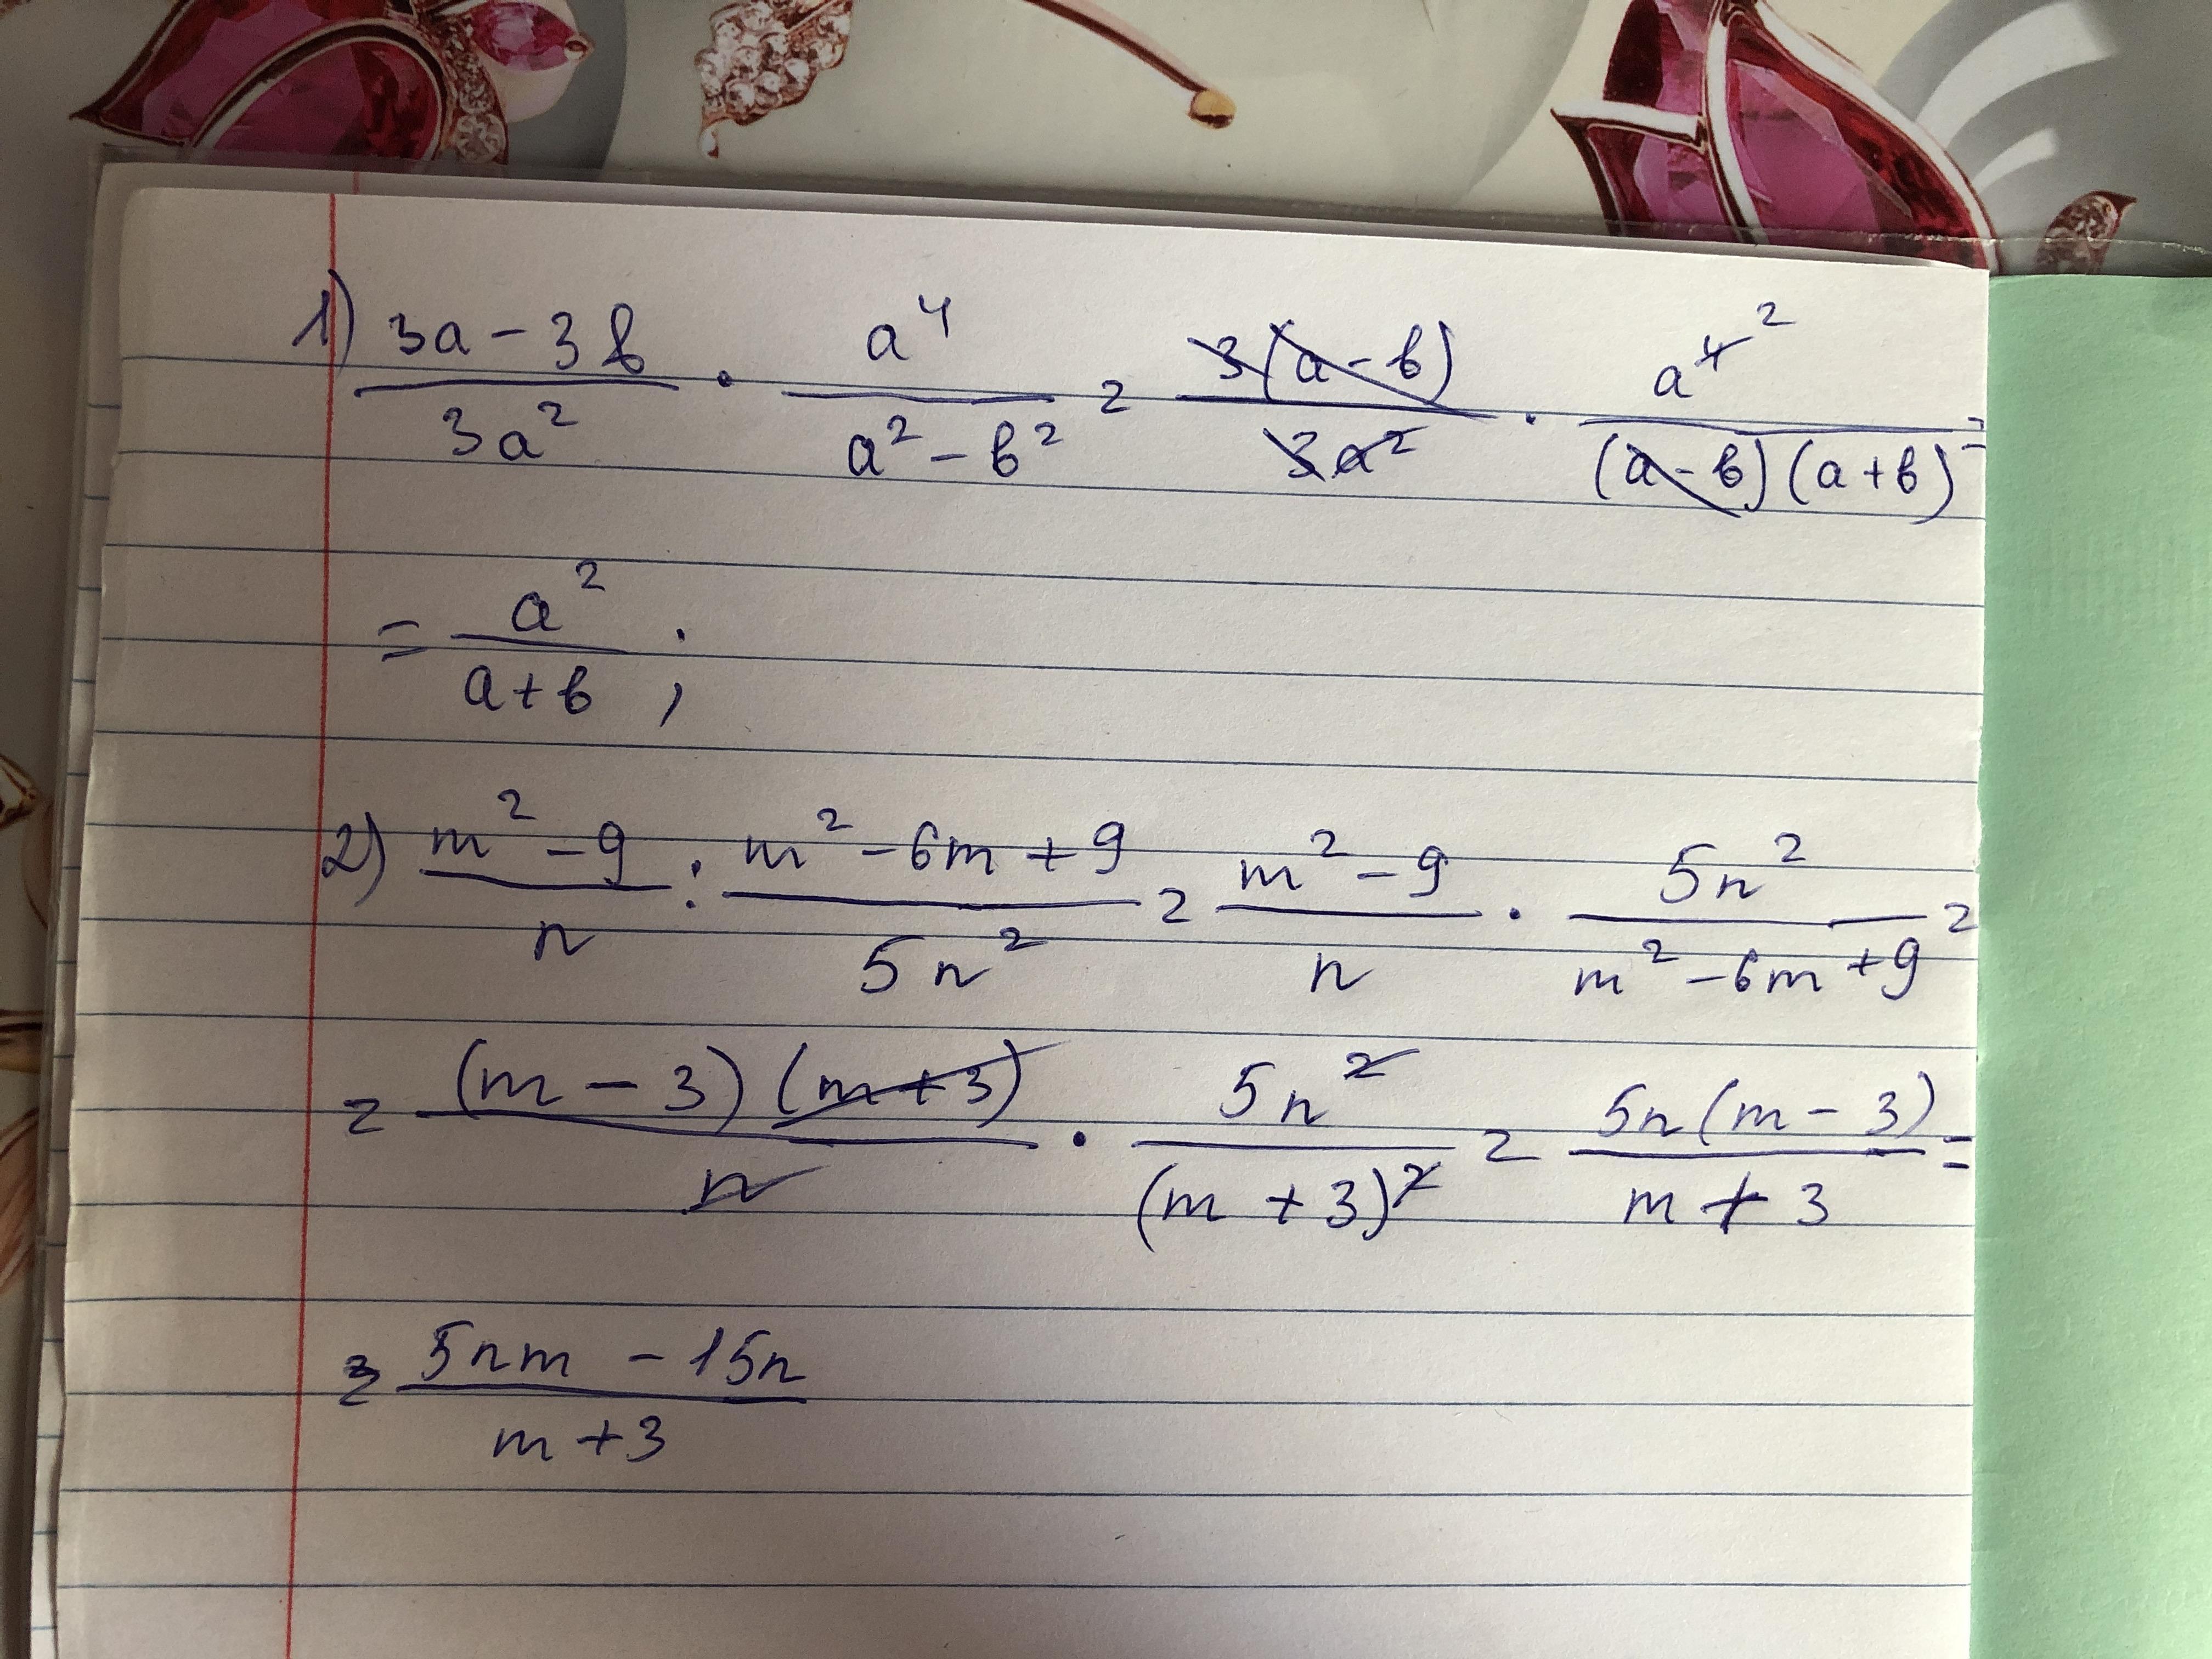 1) \frac{3a-3b}{3a^2} · \frac{a^4}{a^2-b^2} = \frac{3(a-b)}{3a^2} · \frac{a^{4 2}}{(a-b)(a+b)} =
= \frac{a^2}{a+b};
2) \frac{m^2-9}{n} : \frac{m^2-6m+9}{5n^2} = \frac{m^2-9}{n} · \frac{5n^2}{m^2-6m+9} =
= \frac{(m-3)(m+3)}{n} · \frac{5n^2}{(m+3)^2} = \frac{5n(m-3)}{m+3} =
= \frac{5nm-15n}{m+3}